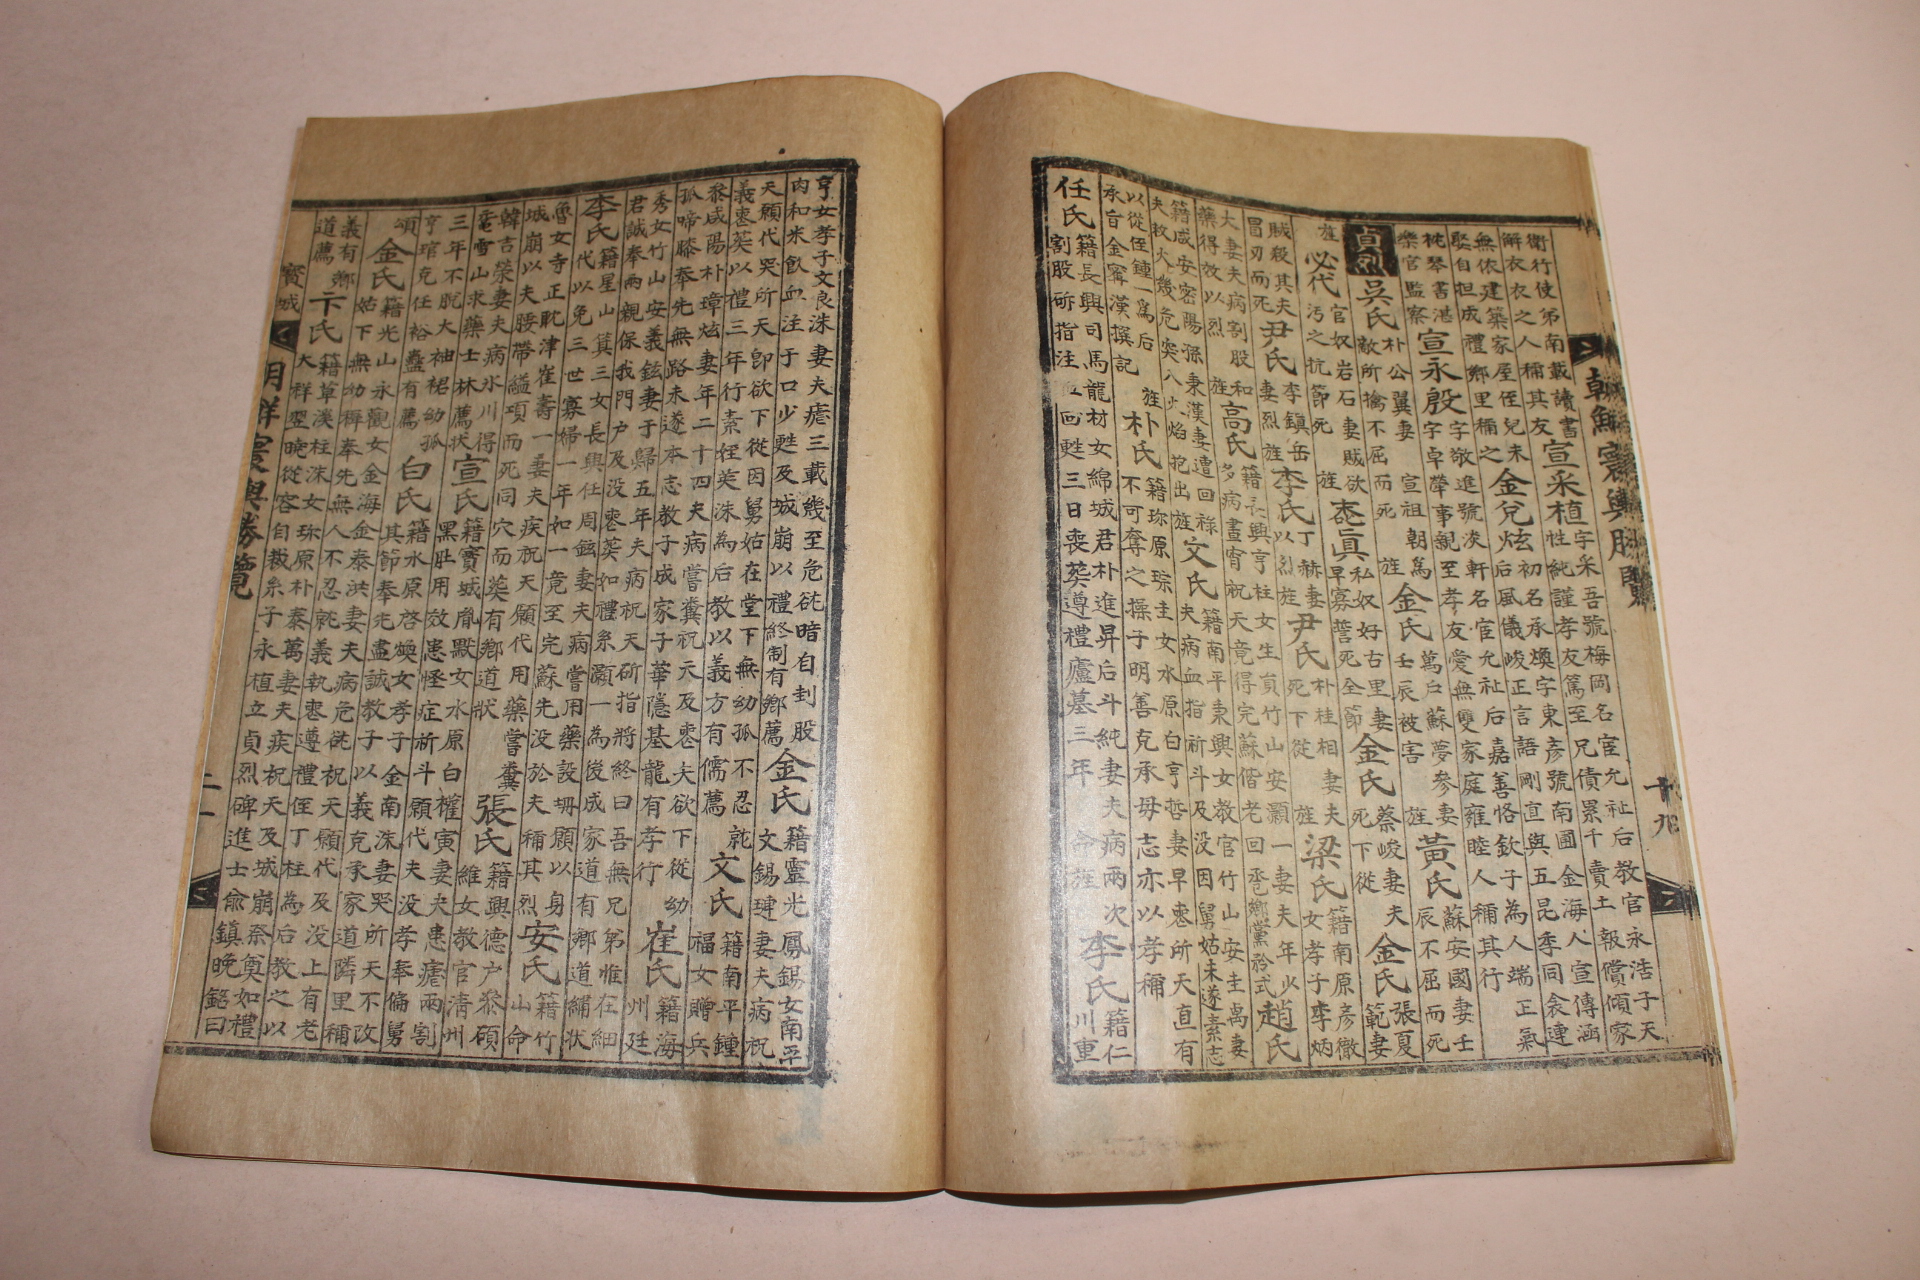 朝鮮寰輿勝覽 十九
衛行使第南載讀書 宣采植 字采吾號梅岡名宦允祉后教官永浩子天
解衣衣之人稱其友 性純謹孝友篤至兄債累千賣土報償傾家
無依建築家屋侄兒未 金兌炫 初名承煥字東彥號南圃金海人宣傳涵
娶自担成禮鄉里稱之 后風儀峻正言語剛直與五昆季同衾連
枕琴書湛 宣永殷 字敬進號凌軒名宦允祉后嘉善恪欽子為人端正氣
樂官監察 字卓犖事親至孝友愛無雙家庭雍睦人稱其行
貞烈 吳氏 朴公翼妻 宣祖朝為 金氏 萬戶蘇夢參妻 黃氏 蘇安國妻壬
敵所擒不屈而死 旌 壬辰被害 旌 辰不屈而死
旌 必代 官奴岩石妻賊欲 悫眞 私奴好古里妻 金氏 蔡峻妻夫 金氏 張夏
污之抗節死 旌 早寡誓死全節 死下從 範妻
賊殺其夫 尹氏 李鎮岳 李氏 丁赫妻 尹氏 朴柱相妻夫 梁氏 籍南原彥徹
冒刃而死 妻烈旌 以烈旌 死下從 旌 女孝子李炳
大妻夫病割股和 高氏 籍長興亨柱女生員竹山安灝一妻夫年少 趙氏
藥得效以烈 旌 多病晝宵祝天竟得完蘇偕老回巹鄉黨矜式
籍咸安密陽孫秉漢妻遭回祿 文氏 籍南平秉興女教官竹山安圭禼妻
夫救火幾危突入火焰抱出 旌 夫病血指祈斗及没因舅姑未遂素志
以從侄鍾一為后 旌 朴氏 籍珎原琮圭女水原白亨哲妻早悫所天直有
承旨金寗漢撰記 不可奪之操子明善克承毋志亦以孝稱
任氏 籍長興司馬龍材女綿城君朴進昇后斗純妻夫病兩次 李氏 籍仁
割股斫指注血回甦三日喪葬遵禮廬墓三年 命旌 川重
亨女孝子文良洙妻夫瘧三載幾至危㦯暗自刲股 金氏 籍靈光鳳錫女南平
肉和米飮血注于口少甦及城崩以禮終制有鄉薦 文錫㻋妻夫病祝
天願代哭所天卽欲下從因舅姑在堂下無幼孤不忍就 文氏 籍南平鍾
義悫葬以禮三年行素姪英洙為后教以義方有儒薦 福女贈兵
參咸陽朴璋炫妻年二十四夫病嘗糞祝天及悫夫欲下從幼 崔氏 籍海
孤啼膝奉先無路未遂本志教子成家子華隱基龍有孝行 州廷
秀女竹山安義鉉妻于歸五年夫病祝天斫指將終曰吾無兄弟惟在細
君誠奉兩親保我門户及没悫葬如禮糸灝一為後成家道有鄉道繡狀
李氏 籍星山箕三女長興任周鉉妻夫病嘗用藥設坍願以身 安氏 籍竹
代以免三世寡婦一年如一竟至完蘇先没於夫稱其烈 山命
魯女寺正耽津崔壽一妻夫疾祝天願代用藥嘗糞 張氏 籍興德户參碩
城崩以夫腰帶縊項而死同穴而葬有鄉道狀 維女教官淸州
韓吉榮妻夫病氷川得 宣氏 籍寶城胤默女水原白權寅妻夫患瘧兩割
竜雪山求藥士林薦狀 黑肚用效患怪症祈斗願代夫没孝奉偏舅
三年不脫大袖裙幼孤 白氏 籍水原啓煥女孝子金南洙妻哭所天不改
亨琯克任裕蠱有薦 其節奉死盡誠教子以義克承家道隣里稱
頌 金氏 籍光山永觀女金海金泰洪妻夫病危㦯祝天願代及没上有老
姑下無幼稱奉先無人不忍就義執悫遵禮侄丁柱為后教之以
義有鄉 卞氏 籍草溪柱洙女珎原朴泰萬妻夫疾祝天及城崩奈奠如禮
道薦 大祥翌晩從容自裁糸子永植立貞烈碑進士兪鎮晩銘曰
寶城 朝鮮寰輿勝覽